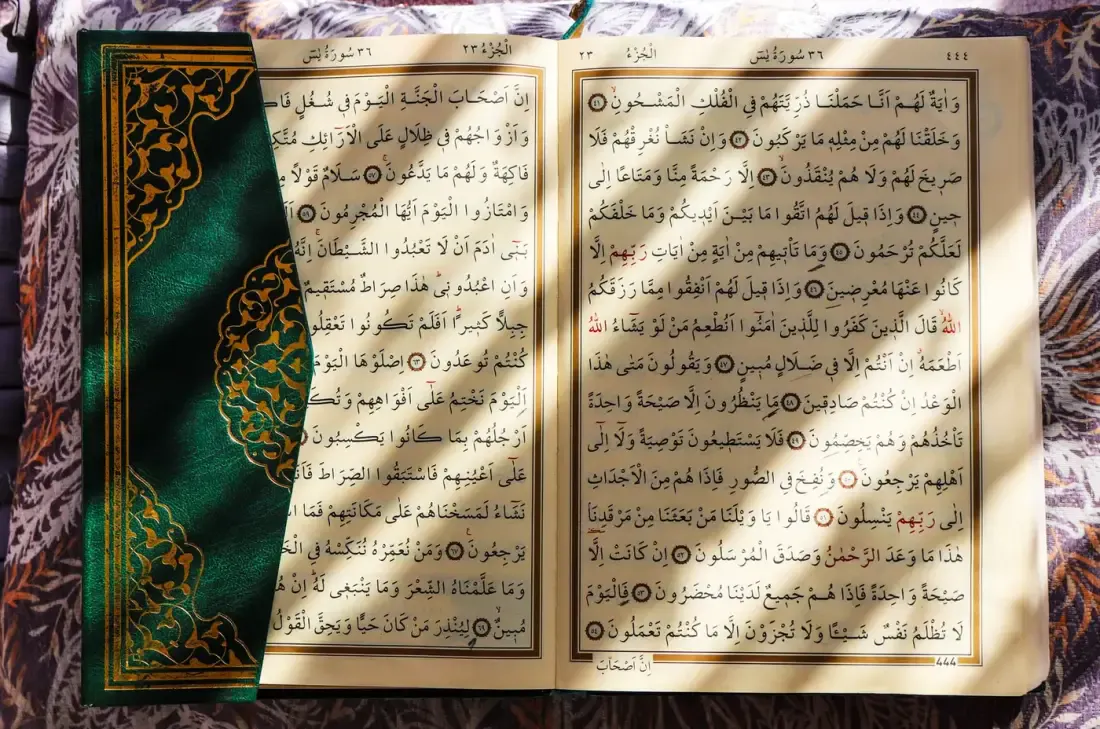 ٤٤٤ ٣٦ سُورَةُ يٰسٓ الْجُزْءُ ٢٣
وَاٰيَةٌ لَهُمْ اَنَّا حَمَلْنَا ذُرِّيَّتَهُمْ فِي الْفُلْكِ الْمَشْحُونِۙ ٤١
وَخَلَقْنَا لَهُمْ مِنْ مِثْلِه۪ مَا يَرْكَبُونَ ٤٢ وَاِنْ نَشَأْ نُغْرِقْهُمْ فَلَا
صَر۪يخَ لَهُمْ وَلَا هُمْ يُنْقَذُونَۙ ٤٣ اِلَّا رَحْمَةً مِنَّا وَمَتَاعًا اِلٰى
ح۪ينٍ ٤٤ وَاِذَا ق۪يلَ لَهُمُ اتَّقُوا مَا بَيْنَ اَيْد۪يكُمْ وَمَا خَلْفَكُمْ
لَعَلَّكُمْ تُرْحَمُونَ ٤٥ وَمَا تَأْت۪يهِمْ مِنْ اٰيَةٍ مِنْ اٰيَاتِ رَبِّهِمْ اِلَّا
كَانُوا عَنْهَا مُعْرِض۪ينَ ٤٦ وَاِذَا ق۪يلَ لَهُمْ اَنْفِقُوا مِمَّا رَزَقَكُمُ
اللّٰهُۙ قَالَ الَّذ۪ينَ كَفَرُوا لِلَّذ۪ينَ اٰمَنُٓوا اَنُطْعِمُ مَنْ لَوْ يَشَٓاءُ اللّٰهُ
اَطْعَمَهُۗ اِنْ اَنْتُمْ اِلَّا ف۪ي ضَلَالٍ مُب۪ينٍ ٤٧ وَيَقُولُونَ مَتٰى هٰذَا
الْوَعْدُ اِنْ كُنْتُمْ صَادِق۪ينَ ٤٨ مَا يَنْظُرُونَ اِلَّا صَيْحَةً وَاحِدَةً
تَأْخُذُهُمْ وَهُمْ يَخِصِّمُونَ ٤٩ فَلَا يَسْتَط۪يعُونَ تَوْصِيَةً وَلَٓا اِلٰٓى
اَهْلِهِمْ يَرْجِعُونَ ٥٠ وَنُفِخَ فِي الصُّورِ فَاِذَا هُمْ مِنَ الْاَجْدَاثِ
اِلٰى رَبِّهِمْ يَنْسِلُونَ ٥١ قَالُوا يَا وَيْلَنَا مَنْ بَعَثَنَا مِنْ مَرْقَدِنَاۢ
هٰذَا مَا وَعَدَ الرَّحْمٰنُ وَصَدَقَ الْمُرْسَلُونَ ٥٢ اِنْ كَانَتْ اِلَّا
صَيْحَةً وَاحِدَةً فَاِذَا هُمْ جَم۪يعٌ لَدَيْنَا مُحْضَرُونَ ٥٣ فَالْيَوْمَ
لَا تُظْلَمُ نَفْسٌ شَيْـًٔا وَلَا تُجْزَوْنَ اِلَّا مَا كُنْتُمْ تَعْمَلُونَ ٥٤
444
اِنَّ اَصْحَابَ
الْجُزْءُ ٢٣ ٣٦ سُورَةُ يٰسٓ
اِنَّ اَصْحَابَ الْجَنَّةِ الْيَوْمَ ف۪ي شُغُلٍ
وَاَزْوَاجُهُمْ ف۪ي ظِلَالٍ عَلَى الْاَرَٓائِكِ
فَاكِهَةٌ وَلَهُمْ مَا يَدَّعُونَۚ ٥٧ سَلَامٌ قَوْلًا
وَامْتَازُوا الْيَوْمَ اَيُّهَا الْمُجْرِمُونَ ٥٩
بَن۪ٓي اٰدَمَ اَنْ لَا تَعْبُدُوا الشَّيْطَانَۚ اِنَّهُ
وَاَنِ اعْبُدُون۪يۜ هٰذَا صِرَاطٌ مُسْتَق۪يمٌ
جِبِلًّا كَث۪يرًاۜ اَفَلَمْ تَكُونُوا
كُنْتُمْ تُوعَدُونَ ٦٣ اِصْلَوْهَا الْيَوْمَ
اَلْيَوْمَ نَخْتِمُ عَلٰٓى اَفْوَاهِهِمْ
اَرْجُلُهُمْ بِمَا كَانُوا يَكْسِبُونَ
عَلٰٓى اَعْيُنِهِمْ فَاسْتَبَقُوا الصِّرَاطَ
نَشَٓاءُ لَمَسَخْنَاهُمْ عَلٰى مَكَانَتِهِمْ فَمَا
يَرْجِعُونَ۟ ٦٧ وَمَنْ نُعَمِّرْهُ نُنَكِّسْهُ فِي
وَمَا عَلَّمْنَاهُ الشِّعْرَ وَمَا يَنْبَغ۪ي لَهُۜ اِنْ
مُب۪ينٌۙ ٦٩ لِيُنْذِرَ مَنْ كَانَ حَيًّا وَيَحِقَّ الْقَوْلُ